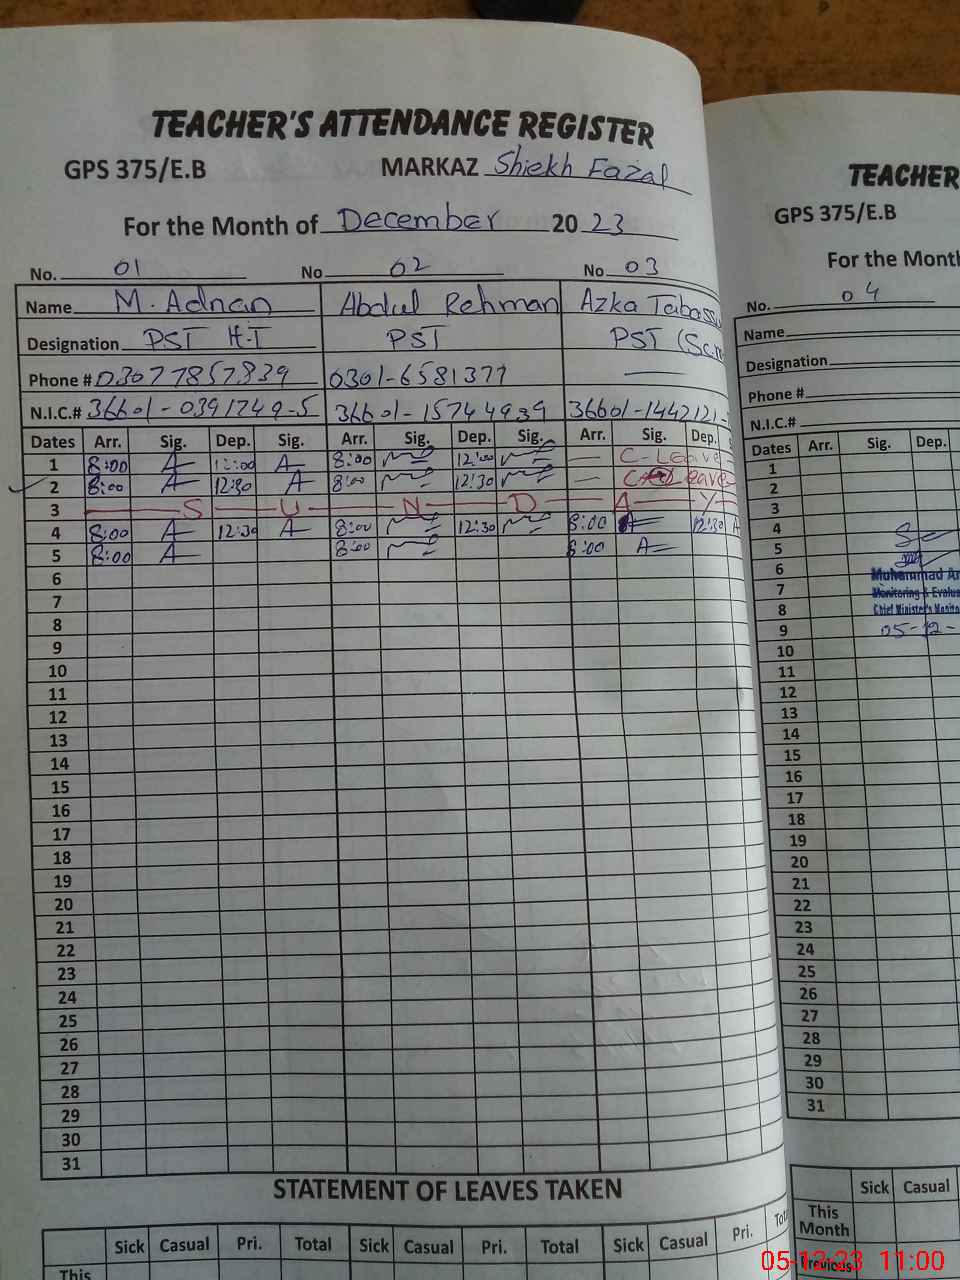 TEACHER'S ATTENDANCE REGISTER
GPS 375/E.B MARKAZ Shiekh Fazal
For the Month of December 2023
No. 01 No 02 No 03
Name M. Adnan Abdul Rehman Azka
Designation PST H.T PST PST
Phone # 03077857839 0301-6581377 —
N.I.C.# 36601-0391749-5 36601-15744939 36601-1442121-
Dates Arr. Sig. Dep. Sig. Arr. Sig. Dep. Sig. Arr. Sig. Dep.
1 8:00 A 12:00 A 8:00 12:00 — C-Leave
2 8:00 A 12:30 A 8:00 12:30 — Leave
3 S U N D A Y
4 8:00 A 12:30 A 8:00 12:30 8:00 A 12:30 A
5 8:00 A 8:00 8:00 A
6
7
8
9
10
11
12
13
14
15
16
17
18
19
20
21
22
23
24
25
26
27
28
29
30
31
STATEMENT OF LEAVES TAKEN
Sick Casual Pri. Total Sick Casual Pri. Total Sick Casual Pri. Tot
This
TEACHER
GPS 375/E.B
For the Month
No. 04
Name
Designation
Phone #
N.I.C.#
Dates Arr. Sig. Dep.
1
2
3
4
5
6 Muhammad
7 Monitoring & Evalua
8 Chief Minister's Monito
9 05-12-
10
11
12
13
14
15
16
17
18
19
20
21
22
23
24
25
26
27
28
29
30
31
Sick Casual
This Month
Previous
05-12-23 11:00